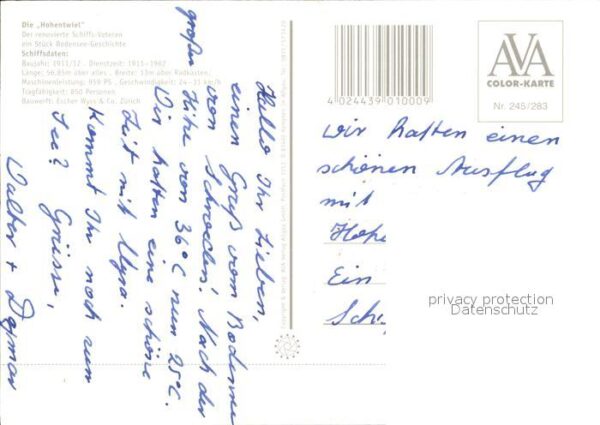 Die „Hohentwiel"
Der renovierte Schiffs-Veteran
ein Stück Bodensee-Geschichte
Schiffsdaten:
Baujahr: 1911/12 - Dienstzeit: 1913-1962
Länge: 56,85m über alles, Breite: 13m über Radkasten,
Maschinenleistung: 950 PS, Geschwindigkeit: 24-31 km/h
Tragfähigkeit: 850 Personen
Bauwerft: Escher Wyss & Co. Zürich
Hallo Ihr Lieben,
einen Gruß vom Bodensee
von Schweden! Nach der
großen Hitze von 36°C nun 25°C.
Wir hatten eine schöne
Zeit mit
Kommt Ihr noch zum
See? Grüsse,
Walter + Dagmar
4 024439 010009
AVA
COLOR-KARTE
Nr. 245/283
Wir hatten einen
schönen Ausflug
mit
Ein
privacy protection
Datenschutz